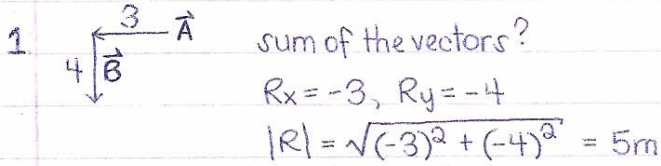 1. 3 A⃗ sum of the vectors?
4 B⃗
Rx = -3, Ry = -4
|R| = √(-3)² + (-4)² = 5m